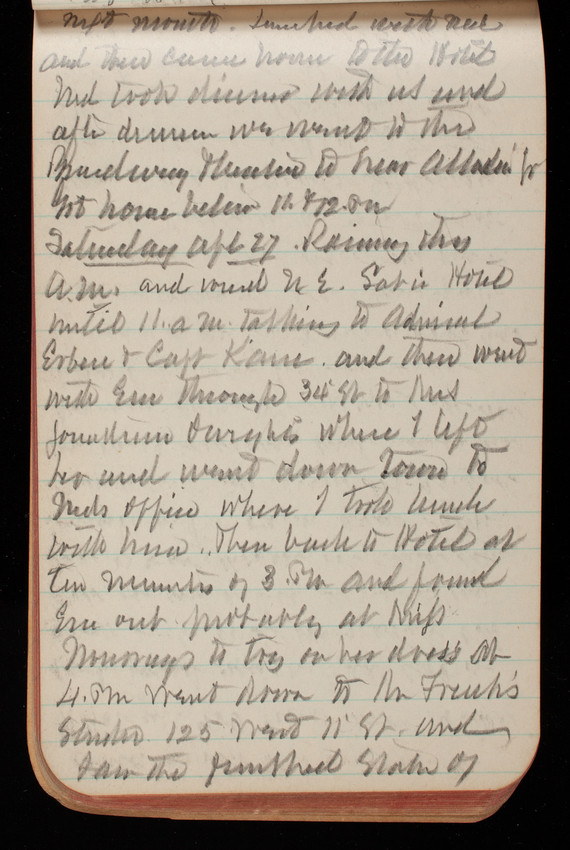 next month. Lunched with Ned
and then came home to the Hotel
Ned took dinner with us and
after dinner we went to the
Broadway Theatre to hear Alladin Jr
Got home before 11.&12. Pm
Saturday Apl 27. Raining this
A.M. and wind N E. Sat in Hotel
until 11. a m. talking to Admiral
Erben & Capt Kane. and then went
with Em through 34 St to Mrs
Jonathan Dwights where I left
her and went down Town to
Neds office where I took lunch
with him. Then back to Hotel at
ten minutes of 3. Pm and found
Em out probably at Miss
to try on her dress At
4. Pm Went down to Mr French's
Studio 125 West 11 St. and
Saw the finished Statue of